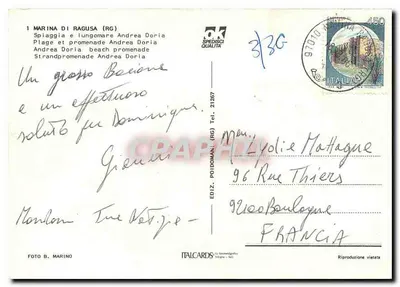 1 MARINA DI RAGUSA (RG)
Spiaggia e lungomare Andrea Doria
Plage et promenade Andrea Doria
Andrea Doria beach promenade
Strandpromenade Andrea Doria
OK
SPEDISCI
QUALITA'
3/3G
97010
450
ITALIA
Un grosso Bacione
e un affettuoso
saluto per Dominique.
EDIZ. POIDOMANI (RG) Tel. 21267
Lydie Mattagne
96 Rue Thiers
92100 Boulogne
FRANCIA
FOTO B. MARINO
ITALCARDS
Riproduzione vietata